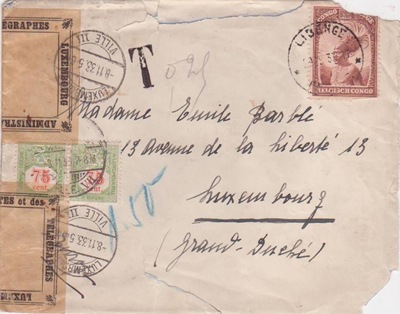 ÉGRAPHES
LUXEMBOURG
ADMINISTR
VILLE
-8.11.33.5
LUXEMB
T
LISENGE
BELGISCH CONGO
Madame Emile Barblé
13 Avenue de la liberté 13
Luxembourg
(Grand-Duché)
75
1.50
TES et des
TÉLÉGRAPHES
LUXEM
VILLE
-8.11.33.5
LUXEMB